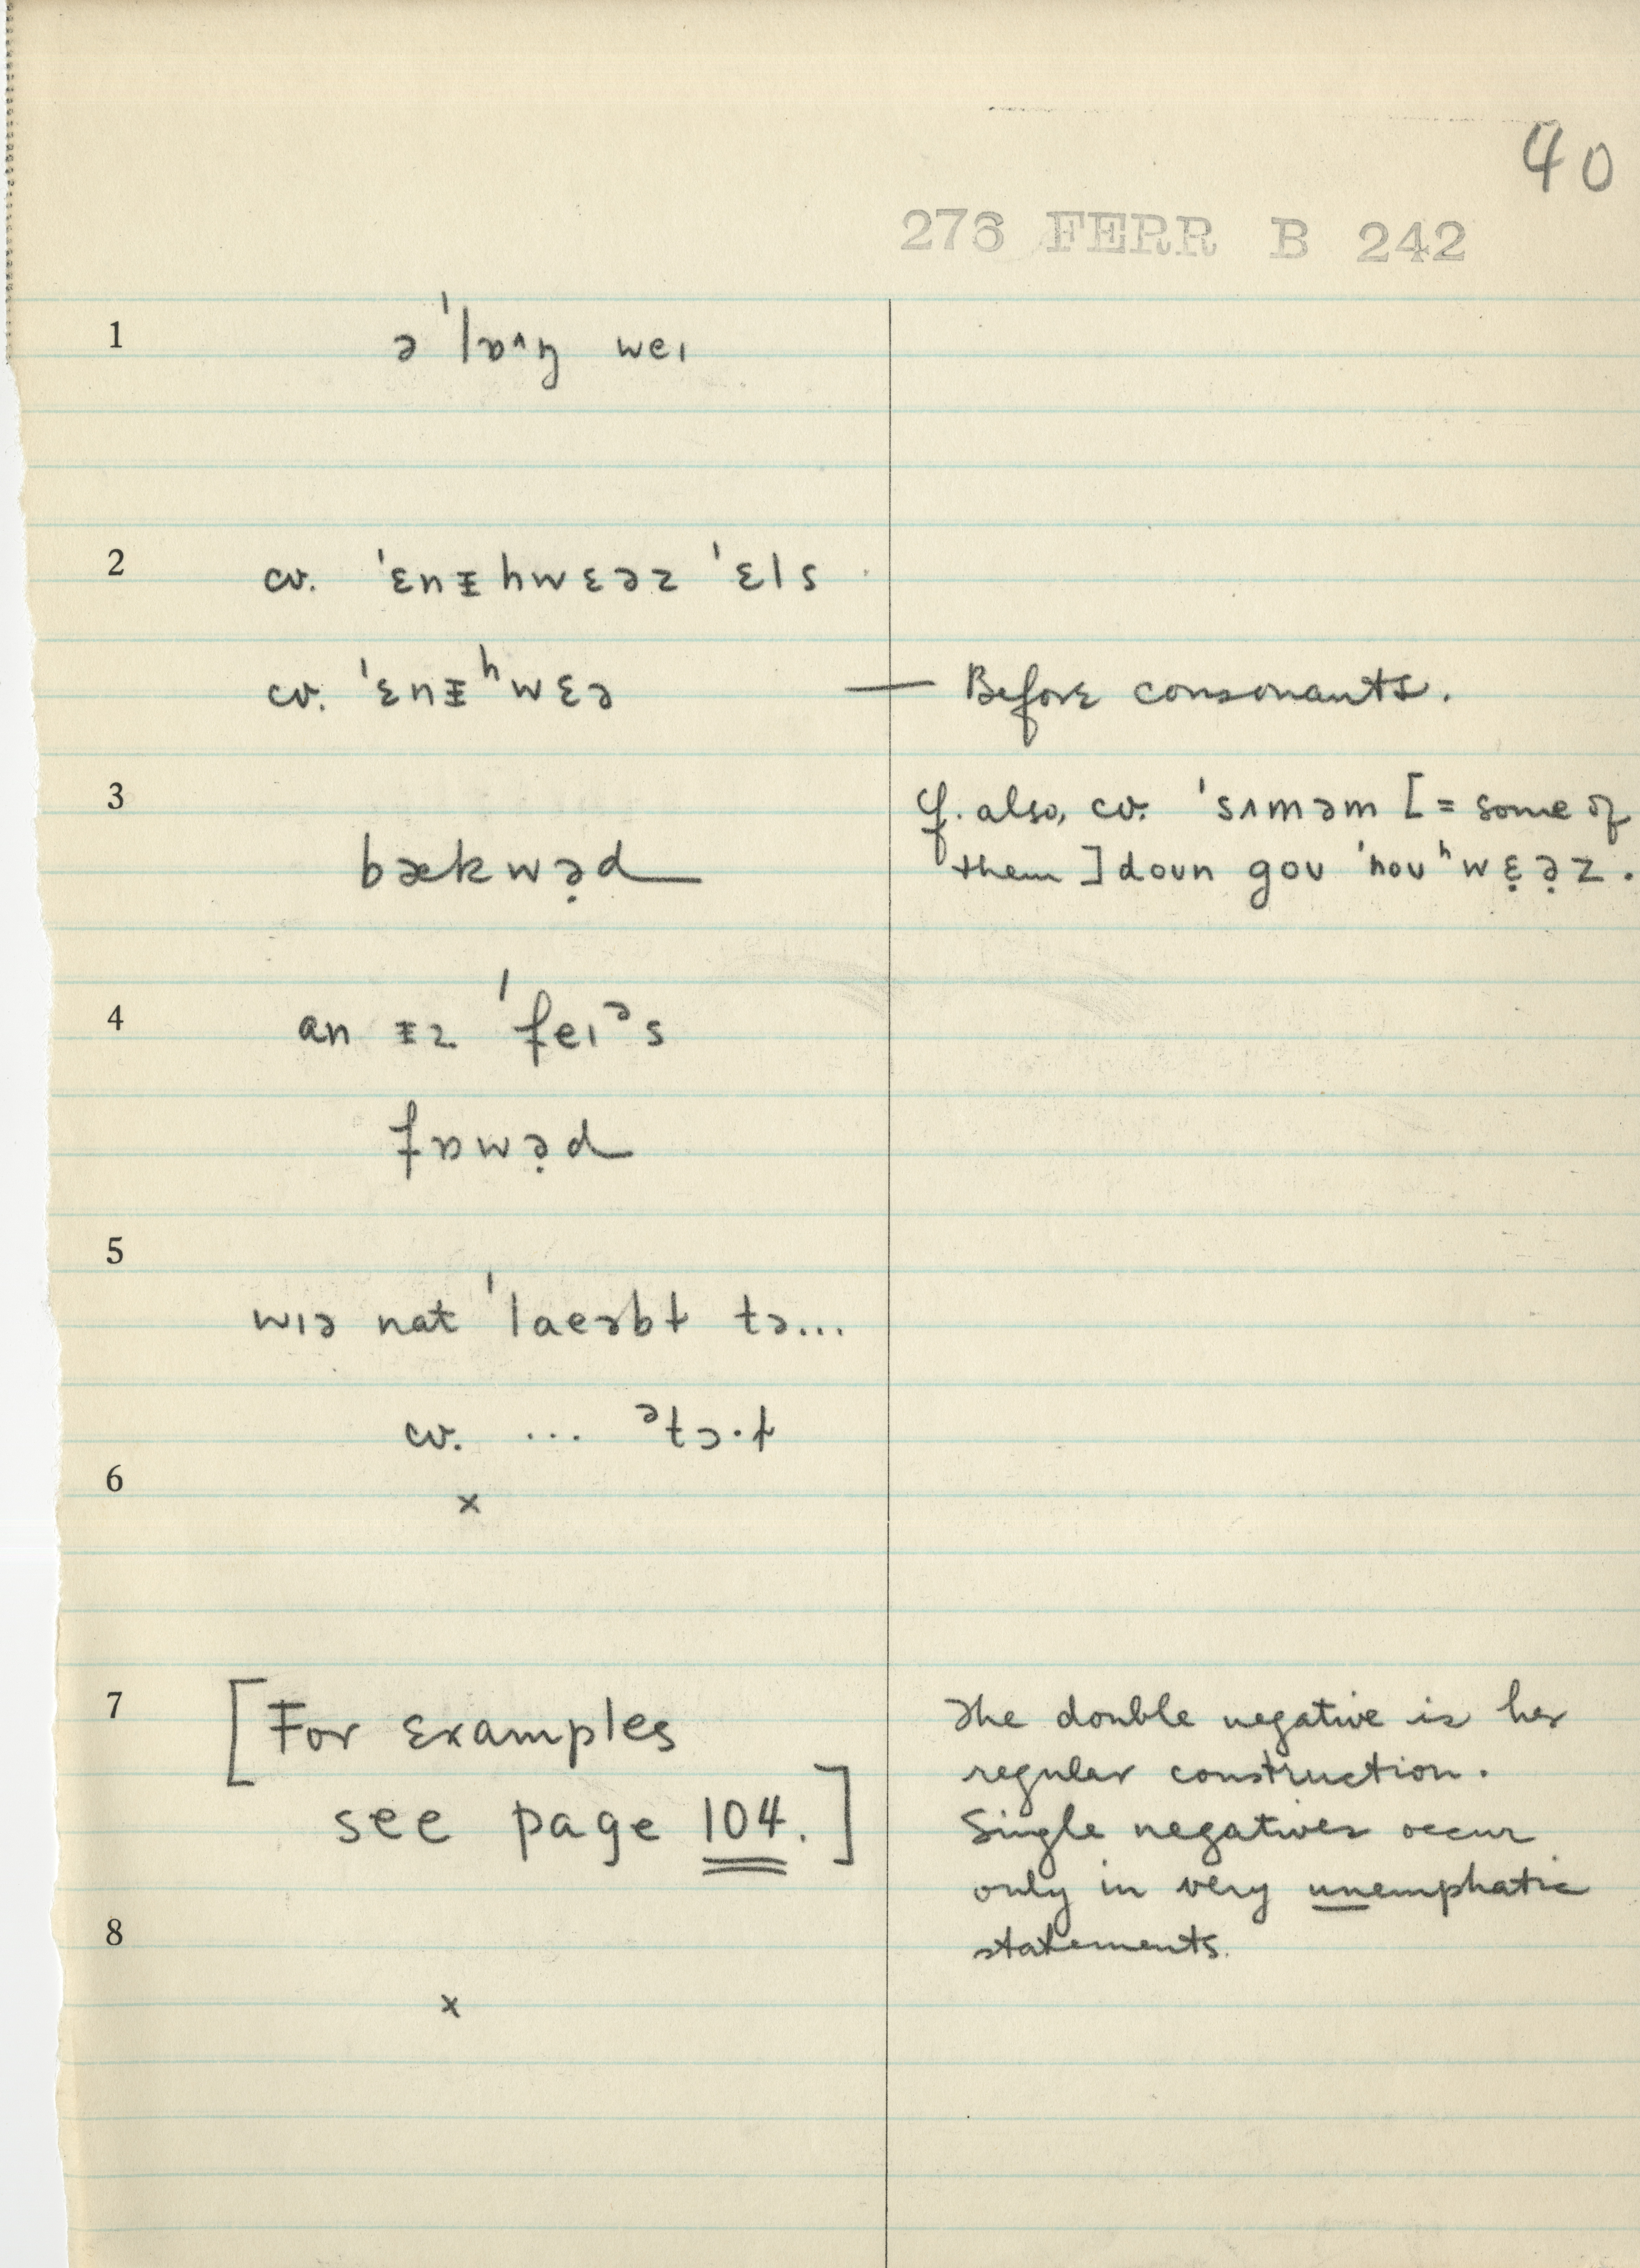 40
276 FERR B 242
1 ə ˈlɒ^ŋ weɪ
2 cv. ˈɛnᵻhwɛəz ˈɛls
cv. ˈɛnᵻʰwɛə — Before consonants.
3 cf. also, cv. ˈsʌməm [= some of
them] doʊn goʊ ˈnoʊʰwɛ̣ə̣z.
bækwə̣d
4 an ᵻz ˈfeɪᵊs
fɒwə̣d
5
wɪə nat ˈlaeəbɫ tə...
cv. ... ᵊtɔ·ɫ
6 x
7 [For Examples
see page 104.]
The double negative is her
regular construction.
Single negatives occur
only in very unemphatic
statements.
8
x